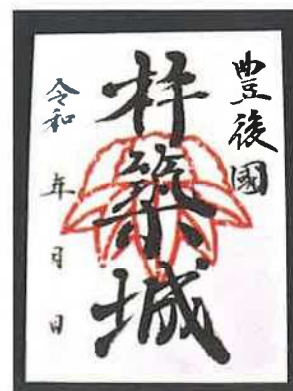 豊後
國
杵築城
令和
年月日